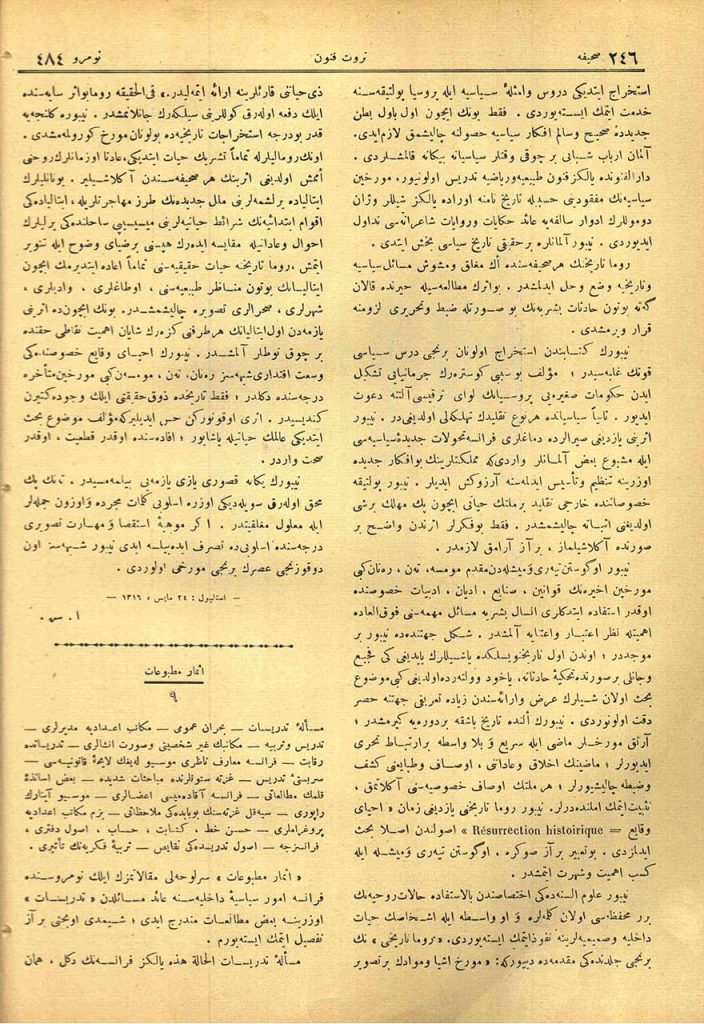 صحیفه ٢٤٦
ثروت فنون
نومرو ٤٨٤
استخراج ایتدیکی دروس وامثلهٔ سیاسیه ایله پروسیا پولتیقه‌سنه
خدمت ایتمك ایسته‌یوردی . فقط بونك ایچون اول باول بطن
جدیدده صحیح وسالم افکار سیاسیه حصولنه چالیشمق لازم‌ایدی.
آلمان ارباب شبابی بر چوق وقتلر سیاسیاته بیکانه قالمشلردی .
دارالفنونده یالکز فنون طبیعیه‌وریاضیه تدریس اولونیور، مورخین
سیاسیه‌نك مفقودیتی حسبیله تاریخ نامنه اوراده یالکز شیللر وژان
دوموللرك ادوار سالفه‌یه عائد حکایات وروایات شاعرانه‌سی تداول
ایدیوردی . نیبور آلمانلره برحقیقی تاریخ سیاسی بخش ایتدی .
روما تاریخنك هرصحیفه‌سنده اك مغلق ومشوش مسائل‌سیاسیه
وتاریخیه وضع وحل ایدلمشدر . بواثرك مطالعه‌سیله حیرتده قالان
گه‌ته بوتون حادثات بشریه‌نك بو صورتله ضبط وتحریری لزومنه
قرار ویرمشدی .
نیبورك کتابندن استخراج اولونان برنجی درس سیاسی
قوتك غلبه‌سیدر ؛ مؤلف بوسببی کوستره‌رك جرمانیایی تشکیل
ایدن حکومات صغیره‌یی پروسیانك لوای ترقیسی آلتنه دعوت
ایدیور . ثانیاً سیاسیاتده هرنوع تقلیدك تهلکه‌لی اولدیغی‌در . نیبور
اثرینی یازدیغی صیرالرده دماغلری فرانسه‌تحولات جدیدهٔ سیاسیه‌سی
ایله مشبوع بعض آلمانلر واردی‌که مملکتلرینك بوافکار جدیده
اوزرینه تنظیم وتأسیس ایدلمه‌سنه آرزوکش ایدیلر . نیبور پولتیقه
خصوصاتنده خارجی تقلید برملتك حیاتی ایچون پك مهلك برشی
اولدیغنی اثباته چالیشمشدر . فقط بوفکرلر اثرندن واضح بر
صورتده آکلاشیلماز ، براز آرامق لازمدر.
نیبور اوکوستن تیه‌ری ومیشله‌دن‌مقدم مومسه‌ن، ته‌ن ، ره‌نان‌کبی
مورخین اخیره‌نك قوانین ، صنایع ، ادیان ، ادبیات خصوصنده
اوقدر استفاده ایتدکلری انسال بشریه مسائل مهمه‌سنی فوق‌العاده
اهمیتله نظر اعتبار واعتنایه آلمشدر . شکل جهتنده‌ده نیبور بر
موجددر ؛ اوندن اول تاریخنویسلکده یاشیللرك یابدیغی کبی فجیع
وجانلی برصورتده‌تحکیهٔ حادثاته، یاخود وولته‌رده‌اولدیغی کبی‌موضوع
بحث اولان شیلرك عرض وارائه‌سندن زیاده تعریفی جهتنه حصر
دقت اولونوردی . نیبورك النده تاریخ باشقه بردوره‌یه کیرمشدر ؛
آرتق مورخلر ماضی ایله سریع و بلا واسطه برارتباط تحری
ایدیورلر ؛ ماضینك اخلاق وعاداتنی ، اوصاف وطبایعنی کشف
وضبطه چالیشیورلر ، هر ملتك اوصاف خصوصیه‌سنی آکلاتمق ،
تثبیت‌ایتمك املنده‌درلر. نیبور روما تاریخنی یازدیغی زمان « احیای
وقایع = Résurrection histoirique » اصولندن اصلا بحث
ایدلزدی . بوتعبیر براز صوکره ، اوکوستن تیه‌ری ومیشله ایله
کسب اهمیت وشهرت ایتمشدر .
نیبور علوم السنه‌ده‌کی اختصاصندن بالاستفاده حالات روحیه‌نك
برر محفظه‌سی اولان کله‌لره و او واسطه ایله اشخاصك حیات
داخلیه وصمیمیه‌لرینه نفوذایتمك ایسته‌یوردی. «روما تاریخی» نك
برنجی جلدنده‌کی مقدمه‌ده دییورکه: « مورخ اشیا وموادك برتصویر
ذی‌حیاتنی قارئلرینه ارائه ایتمه‌لیدر.» فی‌الحقیقه رومابواثر سایه‌سنده
ایلك دفعه اوله‌رق کوللرینی سیلکه‌رك جانلانمشدر . نیبوره کلنجه‌یه
قدر بودرجه استخراجات تاریخیه‌ده بولونان مورخ کورولمه‌مشدی .
اونك رومالیلرله تماماً تشریك حیات ایتدیکی، عادتا اوزمانلرك‌روحنی
امش اولدیغی اثرینك هر صحیفه‌سندن آکلاشیلیر . یونانلیلرك
ایتالیاده یرلشمه‌لرینی ملل جدیده‌نك طرز مهاجرتلریله ، ایتالیاده‌کی
اقوام ابتدائیه‌نك شرائط حیاتیه‌لرینی میسیسیپی ساحلنده‌کی یرلیلرك
احوال وعاداتیله مقایسه ایده‌رك هپسنی برضیای وضوح ایله تنویر
ایتمش ،روما تاریخنه حیات حقیقیه‌سنی تماماً اعاده ایتدیرمك ایچون
ایتالیانك بوتون مناظر طبیعیه‌سنی ، اوطاغلری ، وادیلری ،
شهرلری ، صحرالری تصویره چالیشمشدر. بونك ایچون‌ده اثرینی
یازمه‌دن اول‌ایتالیانك هرطرفنی کزه‌رك شایان اهمیت نقاطی حقنده
بر چوق نوطلر آلمشدر . نیبورك احیای وقایع خصوصنده‌کی
وسعت اقتداری‌شبهه‌سز ره‌نان، ته‌ن ، مومسه‌ن‌کبی مورخین‌متأخره
درجه‌سنده دکلدر ؛ فقط تاریخده ذوق‌حقیقتی ایلك وجوده‌کتیرن
کندیسیدر . اثری اوقونورکن حس ایدیلیرکه‌مؤلف موضوع بحث
ایتدیکی عالمك حیاتیله یاشایور ؛ افاده‌سنده اوقدر قطعیت ، اوقدر
صحت واردر .
نیبورك یکانه قصوری یازی یازمه‌یی بیلمه‌مسیدر . ته‌نك پك
محق اوله‌رق سویله‌دیکی اوزره اسلوبی کلمات مجرده واوزون جمله‌لر
ایله معلول مغلقیتدر . اکر موهبهٔ استقصا ومهارت تصویری
درجه‌سنده اسلوبی‌ده تصرف ایده‌بیلسه ایدی نیبور شبهه‌سز اون
دوقوزنجی عصرك برنجی مورخی اولوردی .
— استانبول : ٢٤ مایس ، ١٣١٦ —
ا . س .
اثمار مطبوعات
٩
مسألهٔ تدریسات — بحران عمومی — مکاتب اعدادیه مدیرلری —
تدریس وتربیه — مکاتبك غیر شخصیتی وصورت انشالری — تدریساتده
رقابت — فرانسه معارف ناظری موسیو له‌یغك لایحهٔ قانونیه‌سی —
سربستی تدریس — غزته ستونلرنده مباحثات شدیده — بعض اساتذهٔ
قلمك مطالعاتی — فرانسه آقاده‌میسی اعضالری — موسیو آیتارك
راپوری — سیه‌قل غزته‌سنك بوبابده‌کی ملاحظاتی — بزم مکاتب اعدادیه
پروغراملری — حسن خط ، کتابت ، حساب ، اصول دفتری ،
فرانسزجه — اصول تدریسده‌کی نقایص — تربیهٔ فکریه‌نك تأثیری .
« اثمار مطبوعات » سرلوحه‌لی مقالاتمزك ایلك نومروسنده
فرانسه امور سیاسیهٔ داخلیه‌سنه عائد مسائلدن « تدریسات »
اوزرینه بعض مطالعات مندرج ایدی ؛ شیمدی اوبحثی براز
تفصیل ایتمك ایسته‌یورم .
مسألهٔ تدریسات الحالة هذه یالکز فرانسه‌نك دکل ، همان